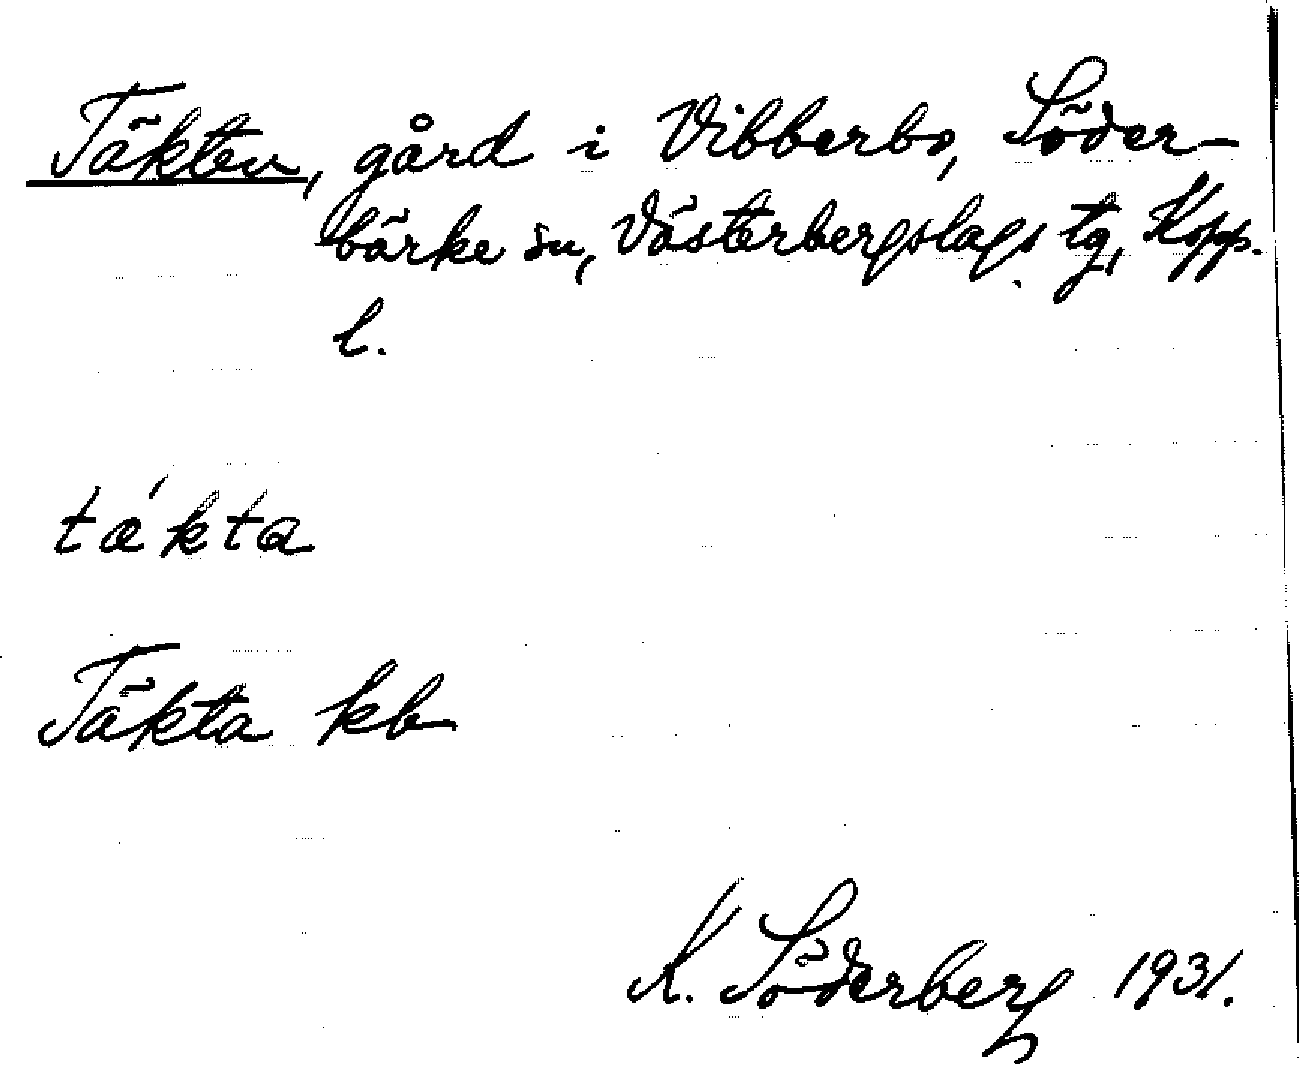 Täkten, gård i Vibberbo, Söder-
bärke sn, Västerbergslags tg, Kopp.
l.
tǽkta
Täkta kb
K. Söderberg 1931.